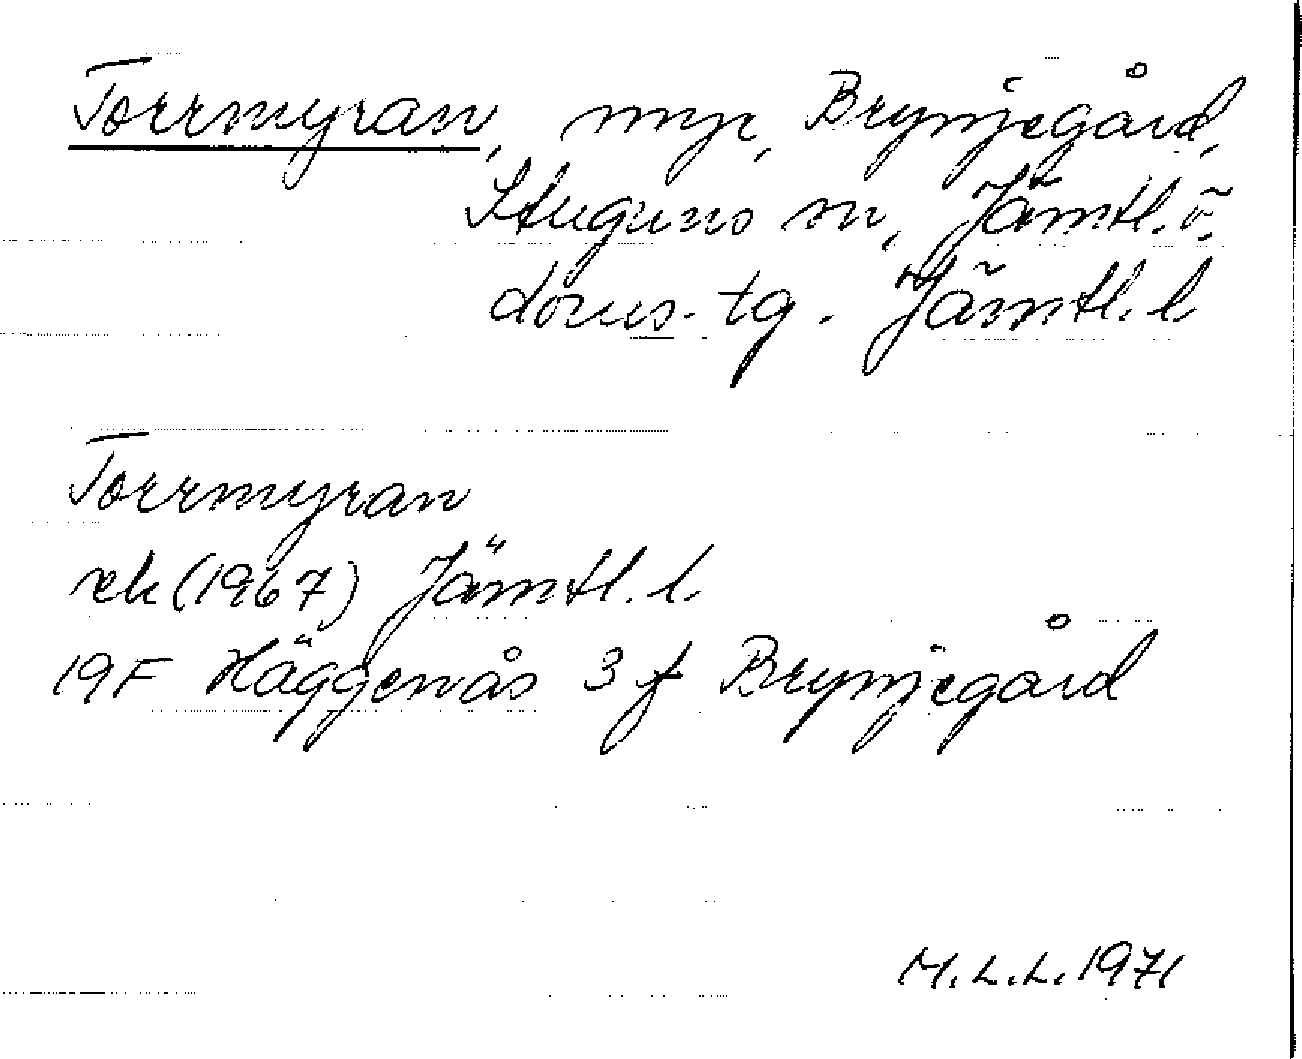 Torrmyran, myr, Brynjegård,
Stuguns sn, Jämtl. ö.
doms. tg. Jämtl. l
Torrmyran
ek (1967) Jämtl. l.
19F Häggenås 3 f Brynjegård
M.L.L. 1971